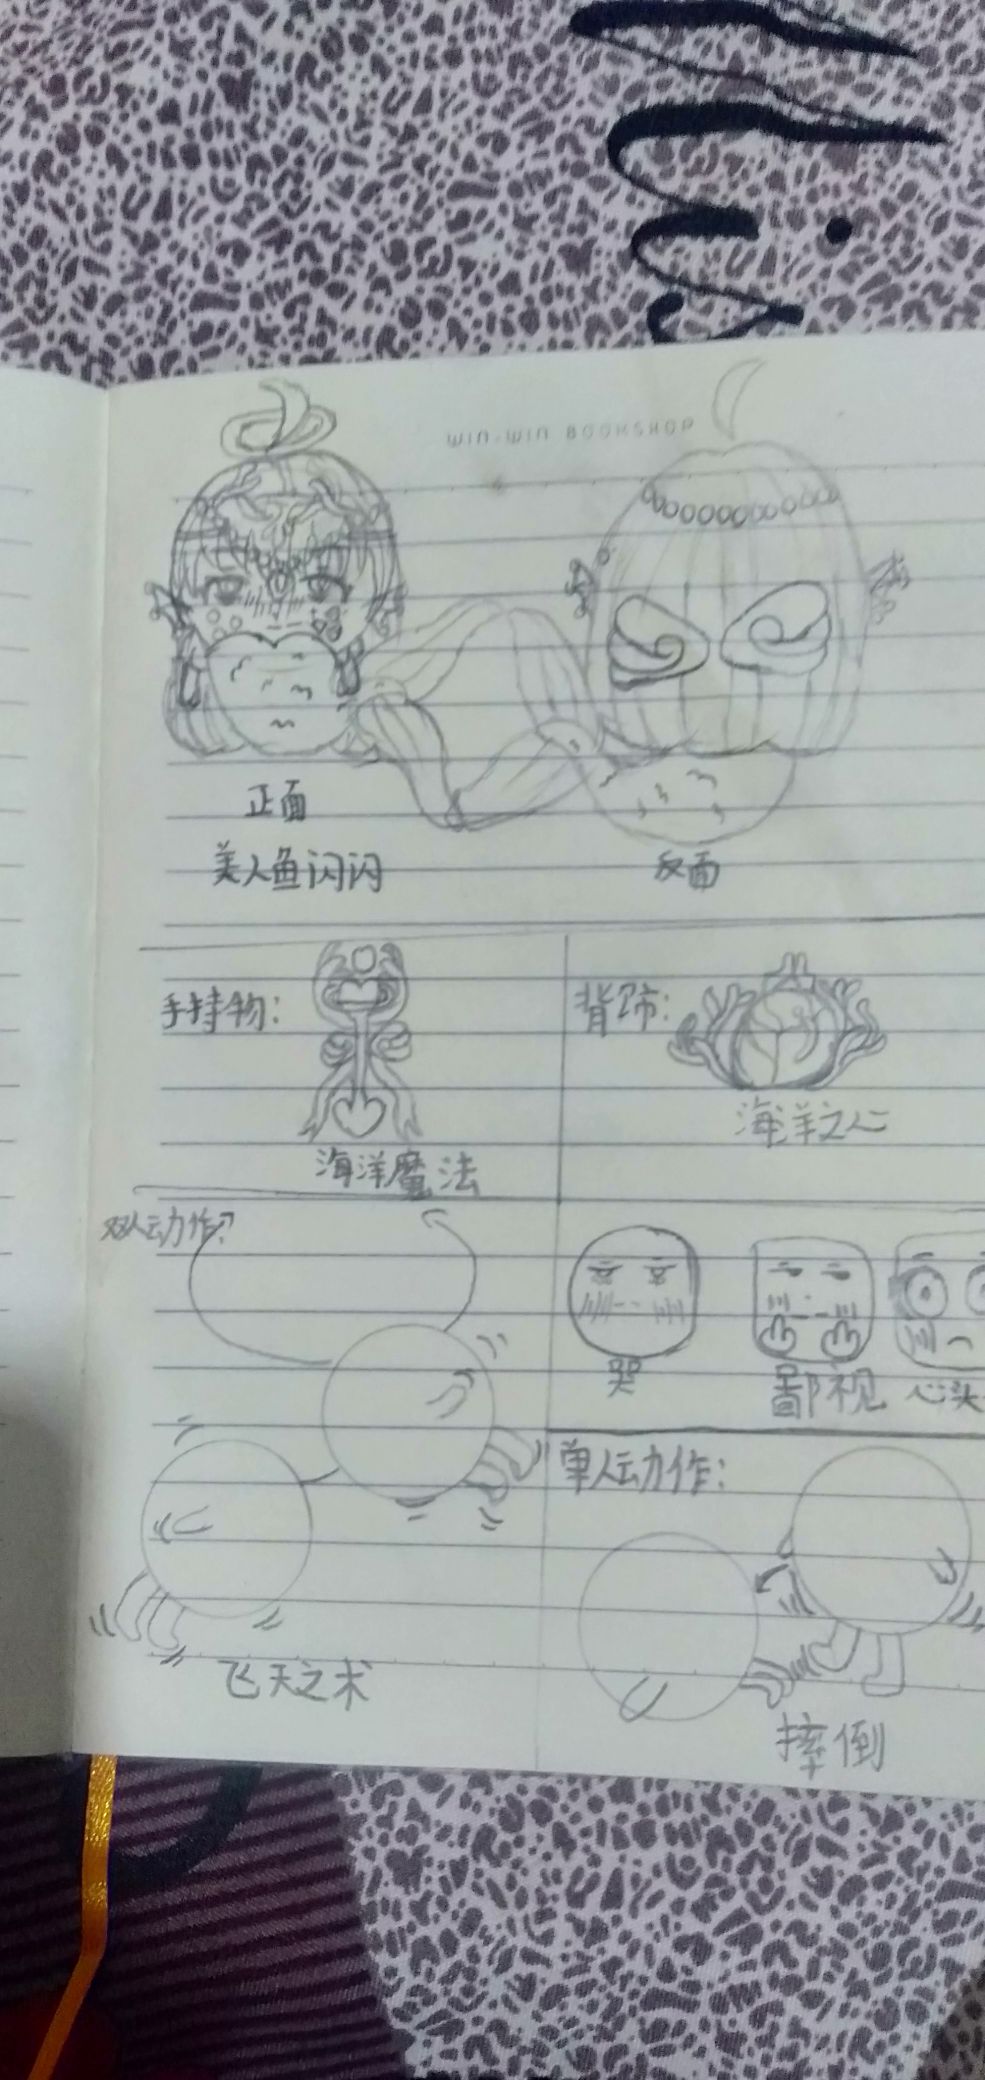 WIN-WIN BOOKSHOP
正面
美人鱼闪闪
反面
手持物:
海洋魔法
背饰:
海洋之心
双人动作:
哭
鄙视
心头
飞天之术
单人动作:
摔倒